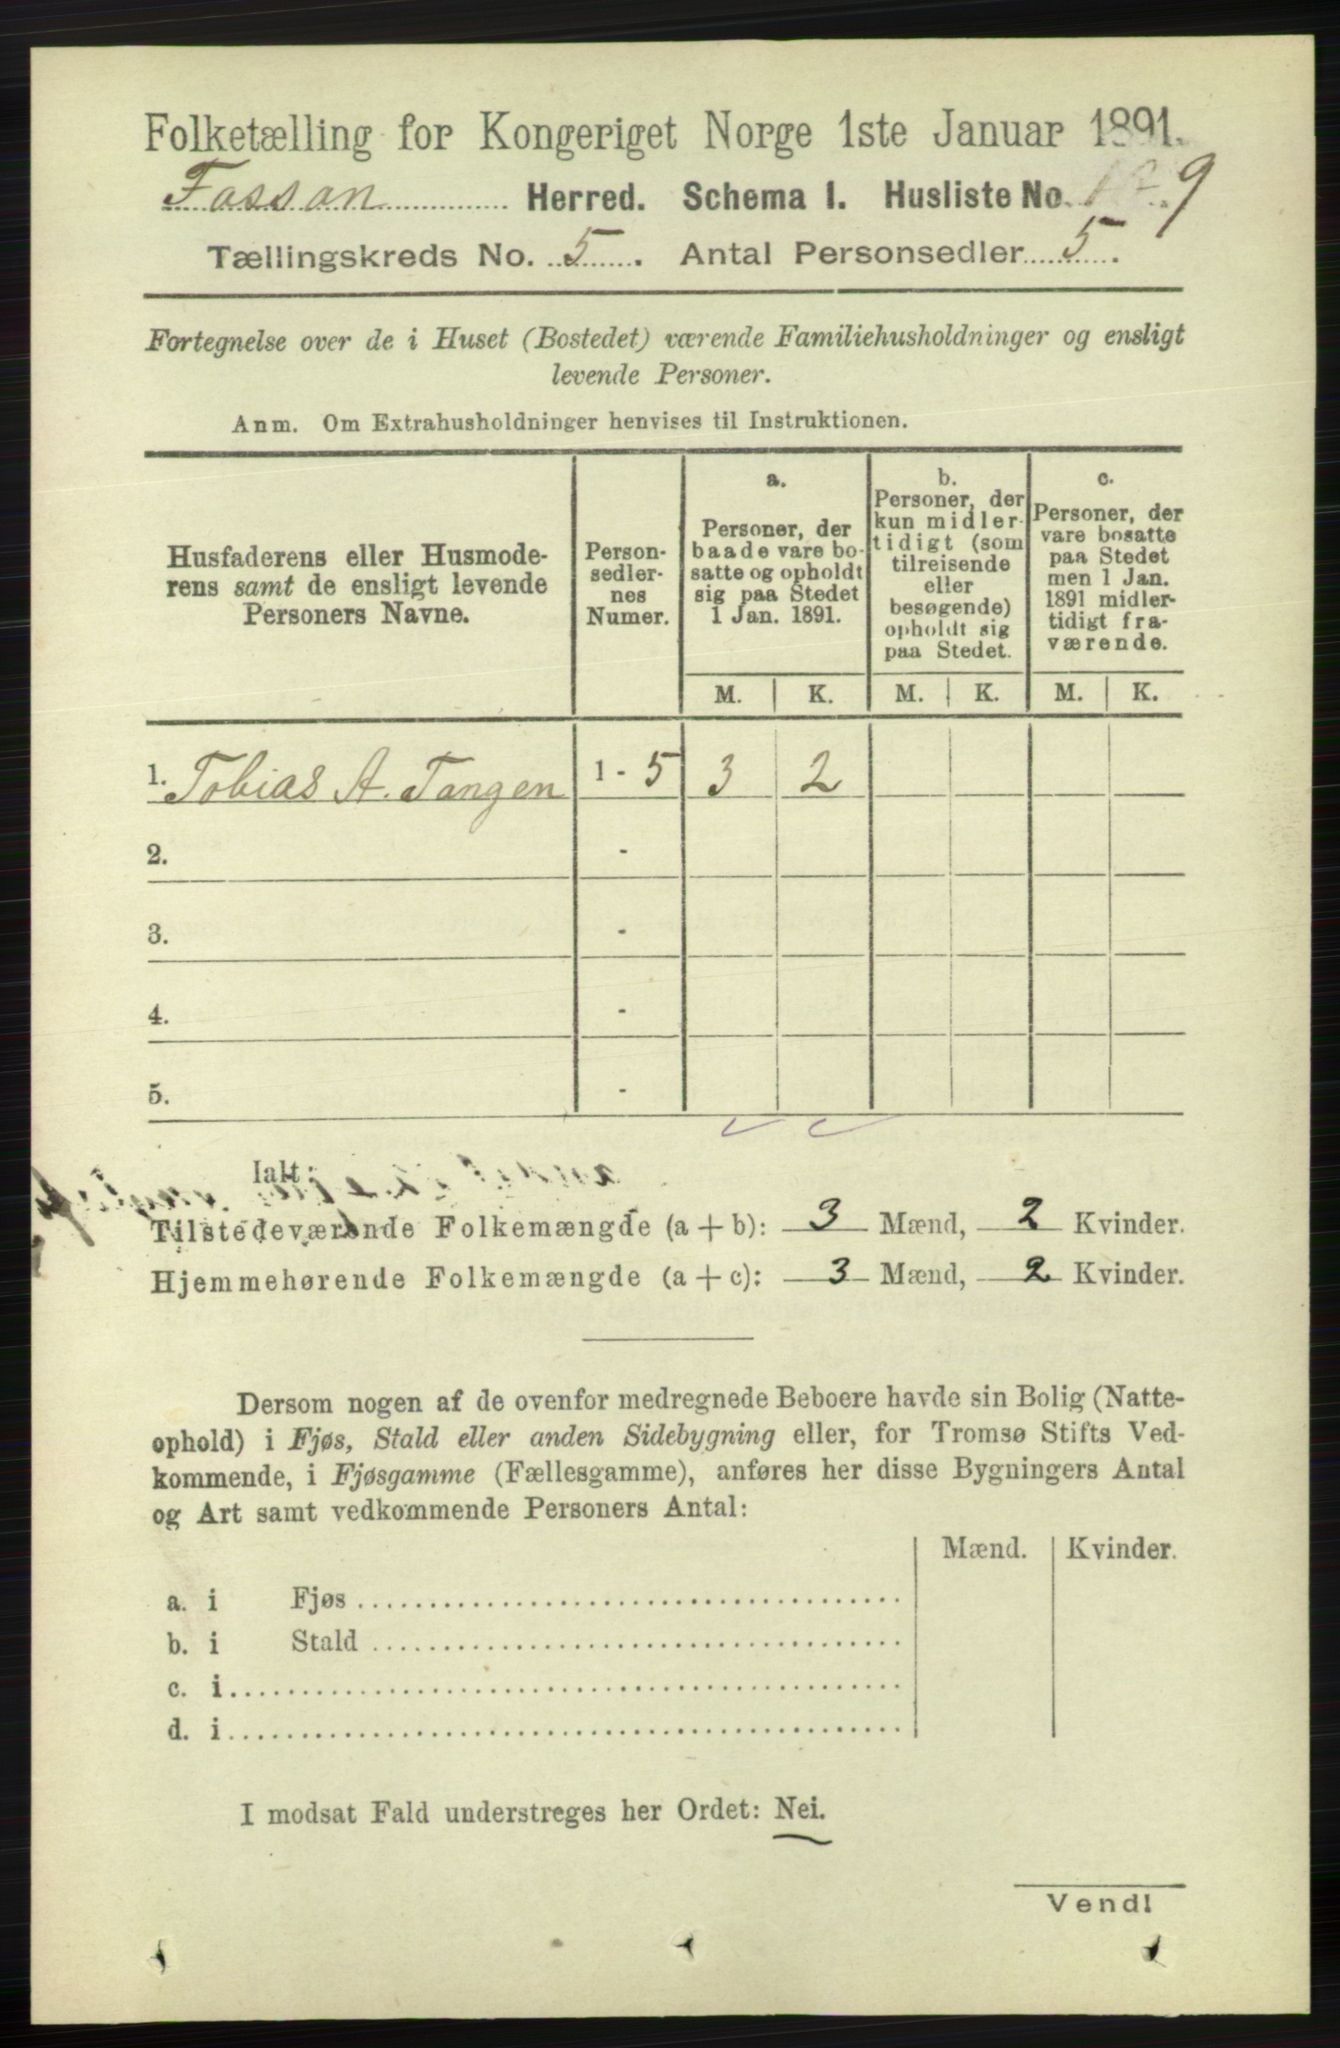 Folketælling for Kongeriget Norge 1ste Januar 1891.
Fossan Herred. Schema I. Husliste No. 9
Tællingskreds No. 5. Antal Personsedler 5.
Fortegnelse over de i Huset (Bostedet) værende Familiehusholdninger og ensligt
levende Personer.
Anm. Om Extrahusholdninger henvises til Instruktionen.
Husfaderens eller Husmode-
rens samt de ensligt levende
Personers Navne.
Person-
sedler-
nes
Numer.
a.
Personer, der
baade vare bo-
satte og opholdt
sig paa Stedet
1 Jan. 1891.
b.
Personer, der
kun midler-
tidigt (som
tilreisende
eller
besøgende)
opholdt sig
paa Stedet.
c.
Personer, der
vare bosatte
paa Stedet
men 1 Jan.
1891 midler-
tidigt fra-
værende.
M. K. M. K. M. K.
1. Tobias A. Tangen 1 - 5 3 2
2. -
3. -
4. -
5. -
Ialt:
Tilstedeværende Folkemængde (a + b): 3 Mænd, 2 Kvinder.
Hjemmehørende Folkemængde (a + c): 3 Mænd, 2 Kvinder.
Dersom nogen af de ovenfor medregnede Beboere havde sin Bolig (Natte-
ophold) i Fjøs, Stald eller anden Sidebygning eller, for Tromsø Stifts Ved-
kommende, i Fjøsgamme (Fællesgamme), anføres her disse Bygningers Antal
og Art samt vedkommende Personers Antal:
Mænd. Kvinder.
a. i Fjøs
b. i Stald
c. i
d. i
I modsat Fald understreges her Ordet: Nei.
Vend!